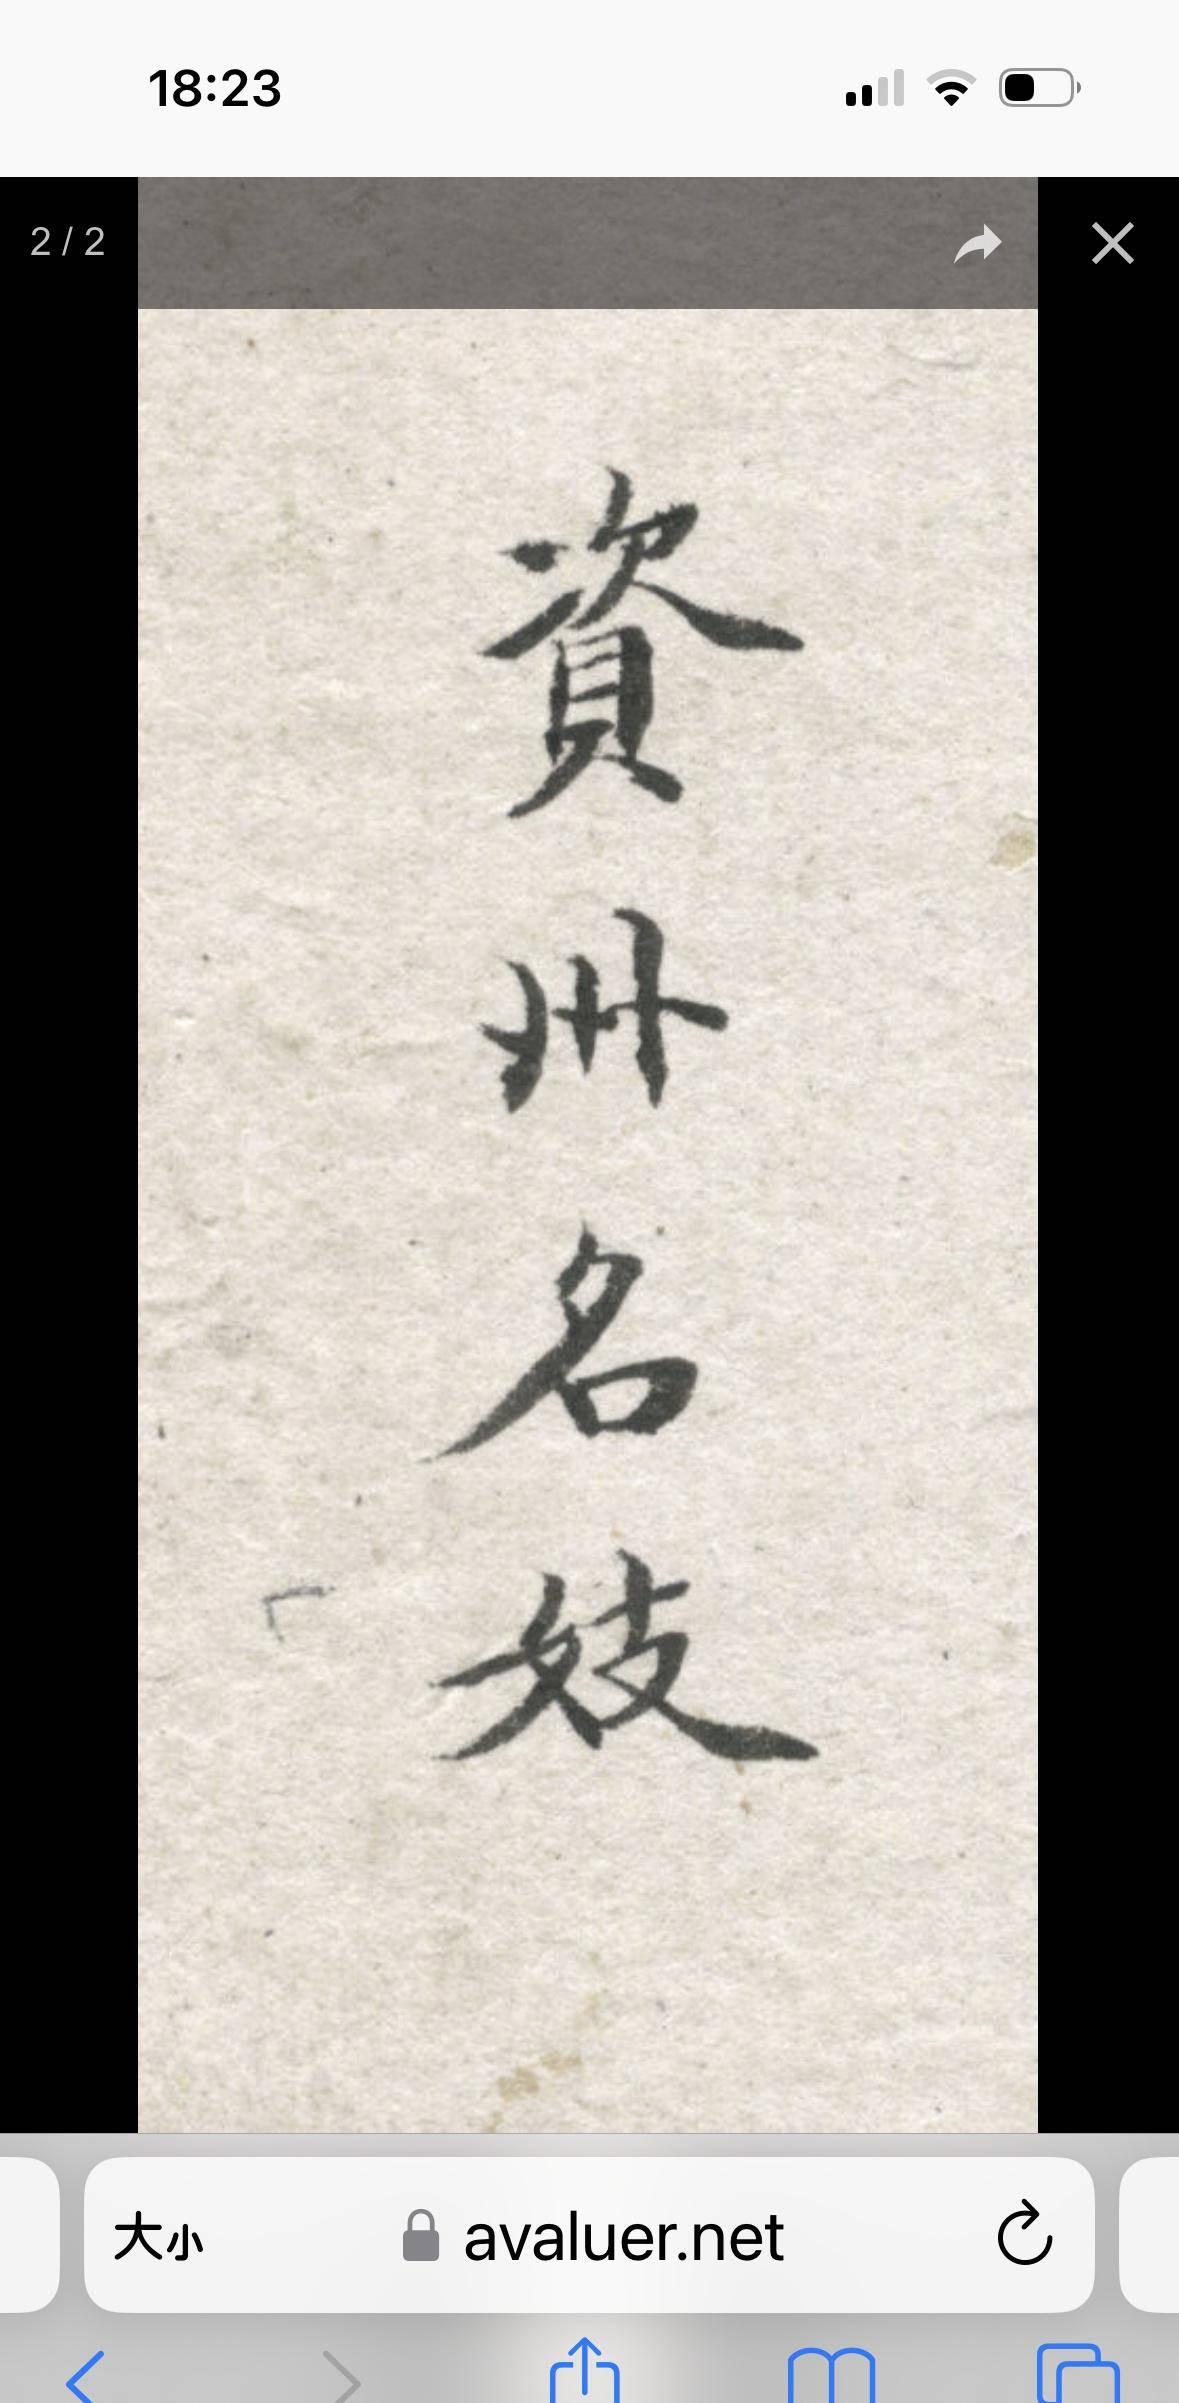 18:23
2 / 2
資州名妓
大小 avaluer.net